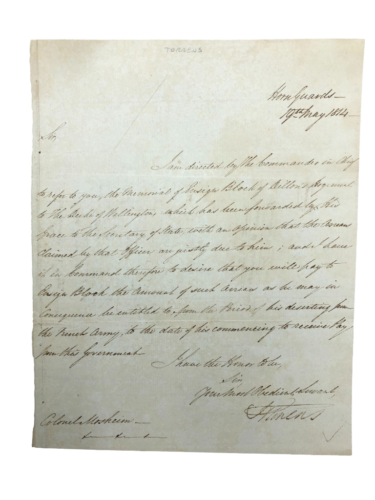 Horse Guards
19th May 1814
Sir,
I am directed by the Commander in Chief
to refer to you, the Memorial of Ensign Block of Dillon's Regiment
to the Duke of Wellington, which has been forwarded by His
Grace to the Secretary of State with an opinion that the Arrears
Claimed by that Officer are justly due to him, and I have
it in Command therefore to desire that you will pay to
Ensign Block the Amount of such Arrears as he may in
Consequence be entitled to, from the Period of his deserting from
the French Army, to the date of his commencing to receive Pay
from this Government.
I have the Honor to be,
Sir
Your Most Obedient Servant,
Colonel Mosheim